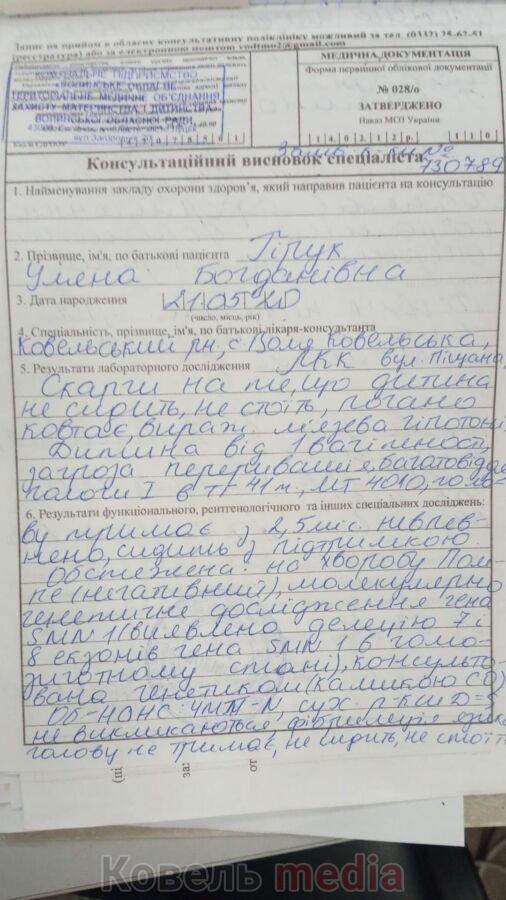 Запис на прийом в обласну консультативну поліклініку можливий за тел. (0332)
(реєстратура) або за електронною поштою vodtmo2@gmail.com
КОМУНАЛЬНЕ ПІДПРИЄМСТВО
ВОЛИНСЬКЕ ОБЛАСНЕ
ТЕРИТОРІАЛЬНЕ МЕДИЧНЕ ОБ'ЄДНАННЯ
ЗАХИСТУ МАТЕРИНСТВА І ДИТИНСТВА
ВОЛИНСЬКОЇ ОБЛАСНОЇ РАДИ
МЕДИЧНА ДОКУМЕНТАЦІЯ
Форма первинної облікової документації
№ 028/о
ЗАТВЕРДЖЕНО
Наказ МОЗ України
1 4. 0 2. 1 2 р. 1 1 0
Консультаційний висновок спеціаліста
730789
1. Найменування закладу охорони здоров'я, який направив пацієнта на консультацію
2. Прізвище, ім'я, по батькові пацієнта
Уляна Богданівна
3. Дата народження 21 05 20
(число, місяць, рік)
4. Спеціальність, прізвище, ім'я, по батькові лікаря-консультанта
Ковельський рн, с Воля Ковельська,
5. Результати лабораторного дослідження ЛКК вул. Піщана
Скарги на те, що дитина
не сидить, не стоїть, погано
ковтає, вираж. м'язева гіпотонія
Дитина від 1 вагітності,
загроза переривання, багатовід
пологи I в т/ 41 т., МТ 4010, голо
6. Результати функціонального, рентгенологічного та інших спеціальних досліджень:
ву тримає з 2,5 міс. невпев-
нено, сидить з підтримкою.
Обстежена: на хворобу Пом-
пе (негативний), молекулярно
генетичне дослідження гена
SMN 1 (виявлено делецію 7 і
8 екзонів гена SMN 1 в гомо-
зиготному стані), консульто-
вана генетиком
ЧМН-N сух. р-кси D=S
не викликаються, фібриляція язика
голову не тримає, не сидить, не стоїть
Ковель media